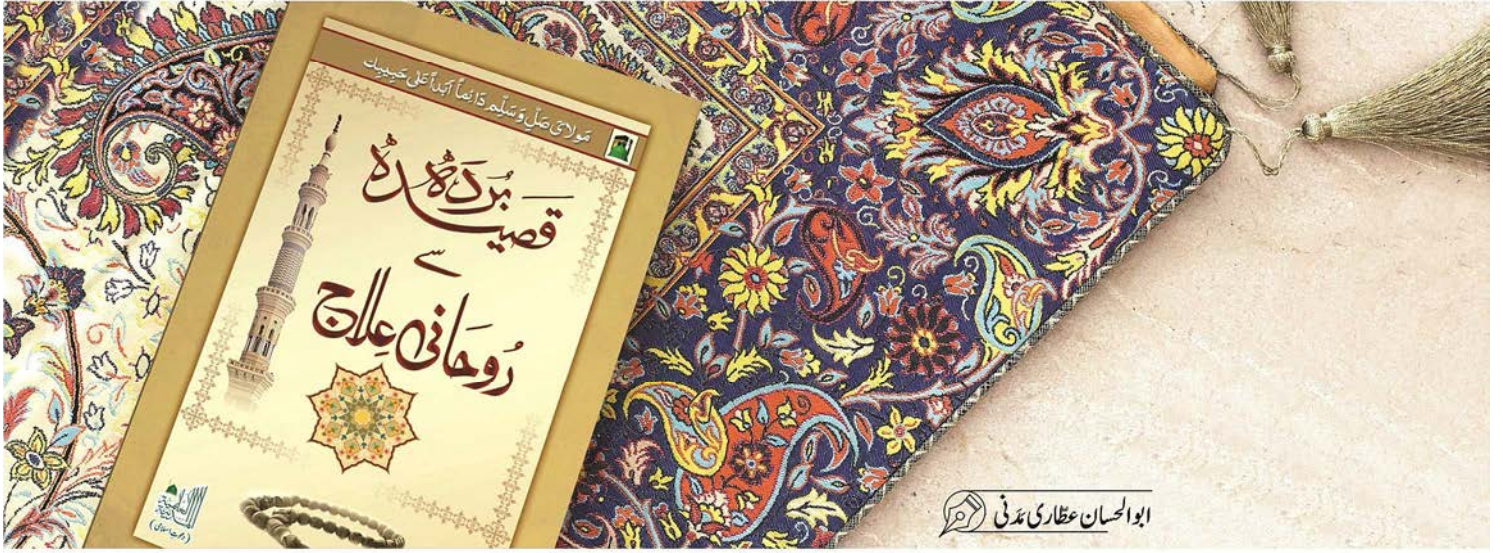 مَولَایَ صَلِّ وَسَلِّم دَائِماً اَبَداً عَلٰی حَبِیبِكَ
قصیدہ بُردَہ
سے
رُوحَانی عِلاج
(دعوتِ اسلامی)
ابوالحسان عطّاری مَدَنی